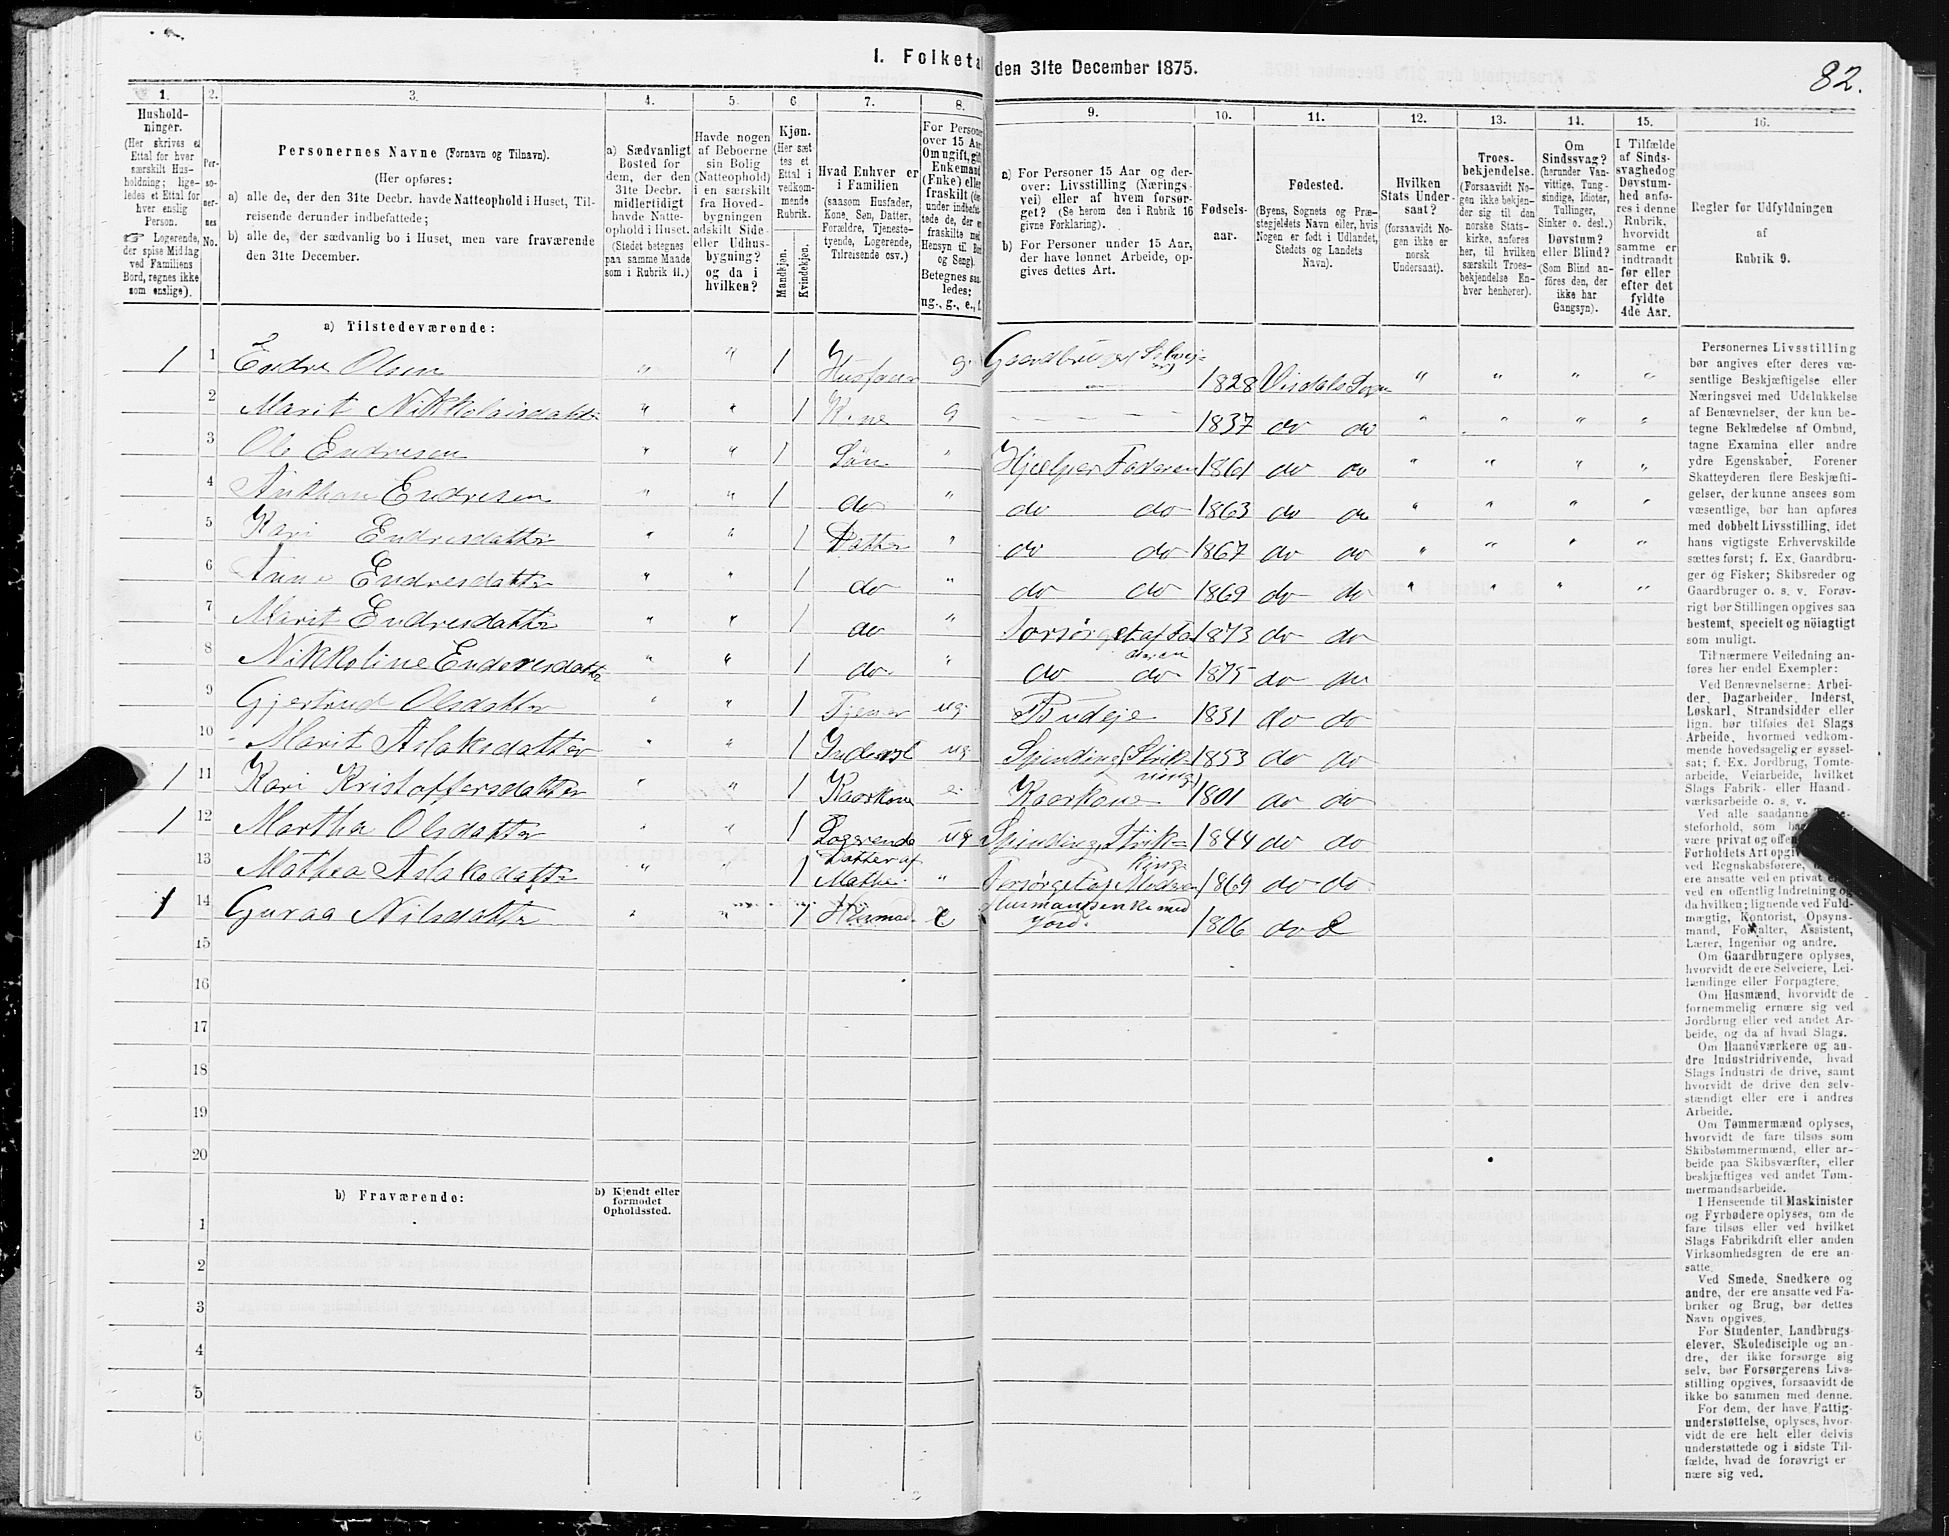 82.
1. Folketa den 31te December 1875.
1. 2. 3. 4. 5. 6 7. 8. 9. 10. 11. 12. 13. 14. 15. 16.
Hushold-
ninger.
(Her skrives et
Ettal for hver
særskilt Hus-
holdning; lige-
ledes et Ettal for
hver enslig
Person.
Logerende,
der spise Middag
ved Familiens
Bord, regnes ikke
som enslige).
Per-
so-
ner-
nes
No.
Personernes Navne (Fornavn og Tilnavn).
(Her opføres:
a) alle de, der den 31te Decbr. havde Natteophold i Huset, Til-
reisende derunder indbefattede;
b) alle de, der sædvanlig bo i Huset, men vare fraværende
den 31te December.
a) Sædvanligt
Bosted for
dem, der den
31te Decbr.
midlertidigt
havde Natte-
ophold i Huset.
(Stedet betegnes
paa samme Maade
som i Rubrik 11.)
Havde nogen
af Beboerne
sin Bolig
(Natteophold)
i en særskilt
fra Hoved-
bygningen
adskilt Side-
eller Udhus-
bygning?
og da i
hvilken?
Kjøn.
(Her sæt-
tes et
Ettal i
vedkom-
mende
Rubrik.
Mandkjøn.
Kvindekjøn.
Hvad Enhver er
i Familien
(saasom Husfader,
Kone, Søn, Datter,
Forældre, Tjeneste-
tyende, Logerende,
Tilreisende osv.)
For Personer
over 15 Aar:
Om ugift, gift,
Enkemand
(Enke) eller
fraskilt
Betegnes saa-
ledes:
ug., g., e., f.
a) For Personer 15 Aar og der-
over: Livsstilling (Nærings-
vei) eller af hvem forsør-
get? (Se herom den i Rubrik 16
givne Forklaring).
b) For Personer under 15 Aar,
der have lønnet Arbeide, op-
gives dettes Art.
Fødsels-
aar.
Fødested.
(Byens, Sognets og Præ-
stegjeldets Navn eller, hvis
Nogen er født i Udlandet,
Stedets og Landets
Navn).
Hvilken
Stats Under-
saat?
(forsaavidt No-
gen ikke er
norsk
Undersaat).
Troes-
bekjendelse.
(Forsaavidt No-
gen ikke bekjen-
der sig til den
norske Stats-
kirke, anføres
her, til hvilken
særskilt Troes-
bekjendelse En-
hver henhører).
Om
Sindssvag?
(herunder Van-
vittige, Tung-
sindige, Idioter,
Tullinger,
Sinker o. desl.)
Døvstum?
eller Blind?
(Som Blind an-
føres den, der
ikke har
Gangsyn).
I Tilfælde
af Sinds-
svaghed og
Døvstum-
hed anfø-
res i denne
Rubrik,
hvorvidt
samme er
indtraadt
før eller
efter det
fyldte
4de Aar.
Regler for Udfyldningen
af
Rubrik 9.
a) Tilstedeværende:
1 1 Endre Olsen " " 1 Husfader g Gaardbruger Selvei- 1828 " " " "
2 Marit Nikkolaisdatter " " 1 Kone g 1837 do do " " " "
3 Ole Endresen " " 1 Søn " Hjælper Faderen 1861 do do " " " "
4 Anthon Endresen " " 1 do " do do 1863 do do " " " "
5 Kari Endresdatter " " 1 Datter " do do 1867 do do " " " "
6 Anne Endresdatter " " 1 do " do do 1869 do do " " " "
7 Marit Endresdatter " " 1 do " Forsørget af Fa- 1873 do do
deren
8 Nikkoline Enderesdatter " " 1 do " do do 1875 do do
9 Gjertrud Olsdatter " " 1 Tjener ug Budeje 1831 do do
10 Marit Aslaksdatter " " 1 Inderst ug Spinding Strik- 1853 do do
ning
1 11 Kari Kristoffersdatter " " 1 Kaarkone e Kaarkone 1801 do do
1 12 Martha Olsdatter " " 1 Logerende ug Spinding, Strik- 1844 do do
king
13 Mathea Aslaksdatter " " 1 Datter af Mathe " Forsørget af Moderen 1869 do do
1 14 Guraa Nilsdatter " " 1 Husmad. e Husmandsenke med 1806 do d
Jord.
15
16
17
18
19
20
b) Fraværende:
b) Kjendt eller
formodet
Opholdssted.
1
2
3
4
5
6
Personernes Livsstilling
bør angives efter deres væ-
sentlige Beskjæftigelse eller
Næringsvei med Udelukkelse
af Benævnelser, der kun be-
tegne Beklædelse af Ombud,
tagne Examina eller andre
ydre Egenskaber. Forener
Skatteyderen flere Beskjæfti-
gelser, der kunne ansees som
væsentlige, bør han opføres
med dobbelt Livsstilling, idet
hans vigtigste Erhvervskilde
sættes først; f. Ex. Gaardbru-
ger og Fisker; Skibsreder og
Gaardbruger o. s. v. Forøv-
rigt bør Stillingen opgives saa
bestemt, specielt og nöiagtigt
som muligt.
Til nærmere Veiledning an-
føres her endel Exempler:
Ved Benævnelserne: Arbei-
der, Dagarbeider, Inderst,
Løskarl, Strandsidder eller
lign. bør tilføies det Slags
Arbeide, hvormed vedkom-
mende hovedsagelig er syssel-
sat; f. Ex. Jordbrug, Tomte-
arbeide, Veiarbeide, hvilket
Slags Fabrik- eller Haand-
værksarbeide o. s. v.
Ved alle saadanne
steforhold, som
være privat og offen
Forholdets Art opgiv
ved Regnskabsførere,
ere ansatte ved en privat el
ved en offentlig Indretning og
da hvilken; lignende ved Fuld-
mægtig, Kontorist, Opsyns-
mand, Forvalter, Assistent,
Lærer, Ingeniør og andre.
Om Gaardbrugere oplyses,
hvorvidt de ere Selveiere, Lei-
lændinge eller Forpagtere.
Om Husmænd, hvorvidt de
fornemmelig ernære sig ved
Jordbrug eller ved andet Ar-
beide, og da af hvad Slags.
Om Haandværkere og an-
dre Industridrivende, hvad
Slags Industri de drive, samt
hvorvidt de drive den selv-
stændigt eller ere i andres
Arbeide.
Om Tømmermænd oplyses,
hvorvidt de fare tilsøs som
Skibstømmermænd, eller ar-
beide paa Skibsværfter, eller
beskjæftiges ved andet Tøm-
mermandsarbeide.
I Henseende til Maskinister
og Fyrbødere oplyses, om de
fare tilsøs eller ved hvilket
Slags Fabrikdrift eller anden
Virksomhedsgren de ere an-
satte.
Ved Smede, Snedkere og
andre, der ere ansatte ved Fa-
briker og Brug, bør dettes
Navn opgives.
For Studenter, Landbrugs-
elever, Skoledisciple og an-
dre, der ikke forsørge sig
selv, bør Forsørgerens Livs-
stilling opgives, forsaavidt de
ikke bo sammen med denne.
For dem, der have Fattig-
understøttelse, oplyses, hvor-
vidt de ere helt eller delvis
understøttede og i sidste Til-
fælde, hvad de forøvrigt er-
nære sig ved.